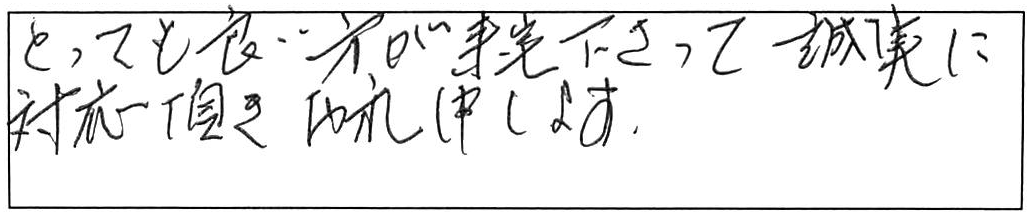 とっても良い方が来て下さって 誠実に
対応頂き 御礼申します.